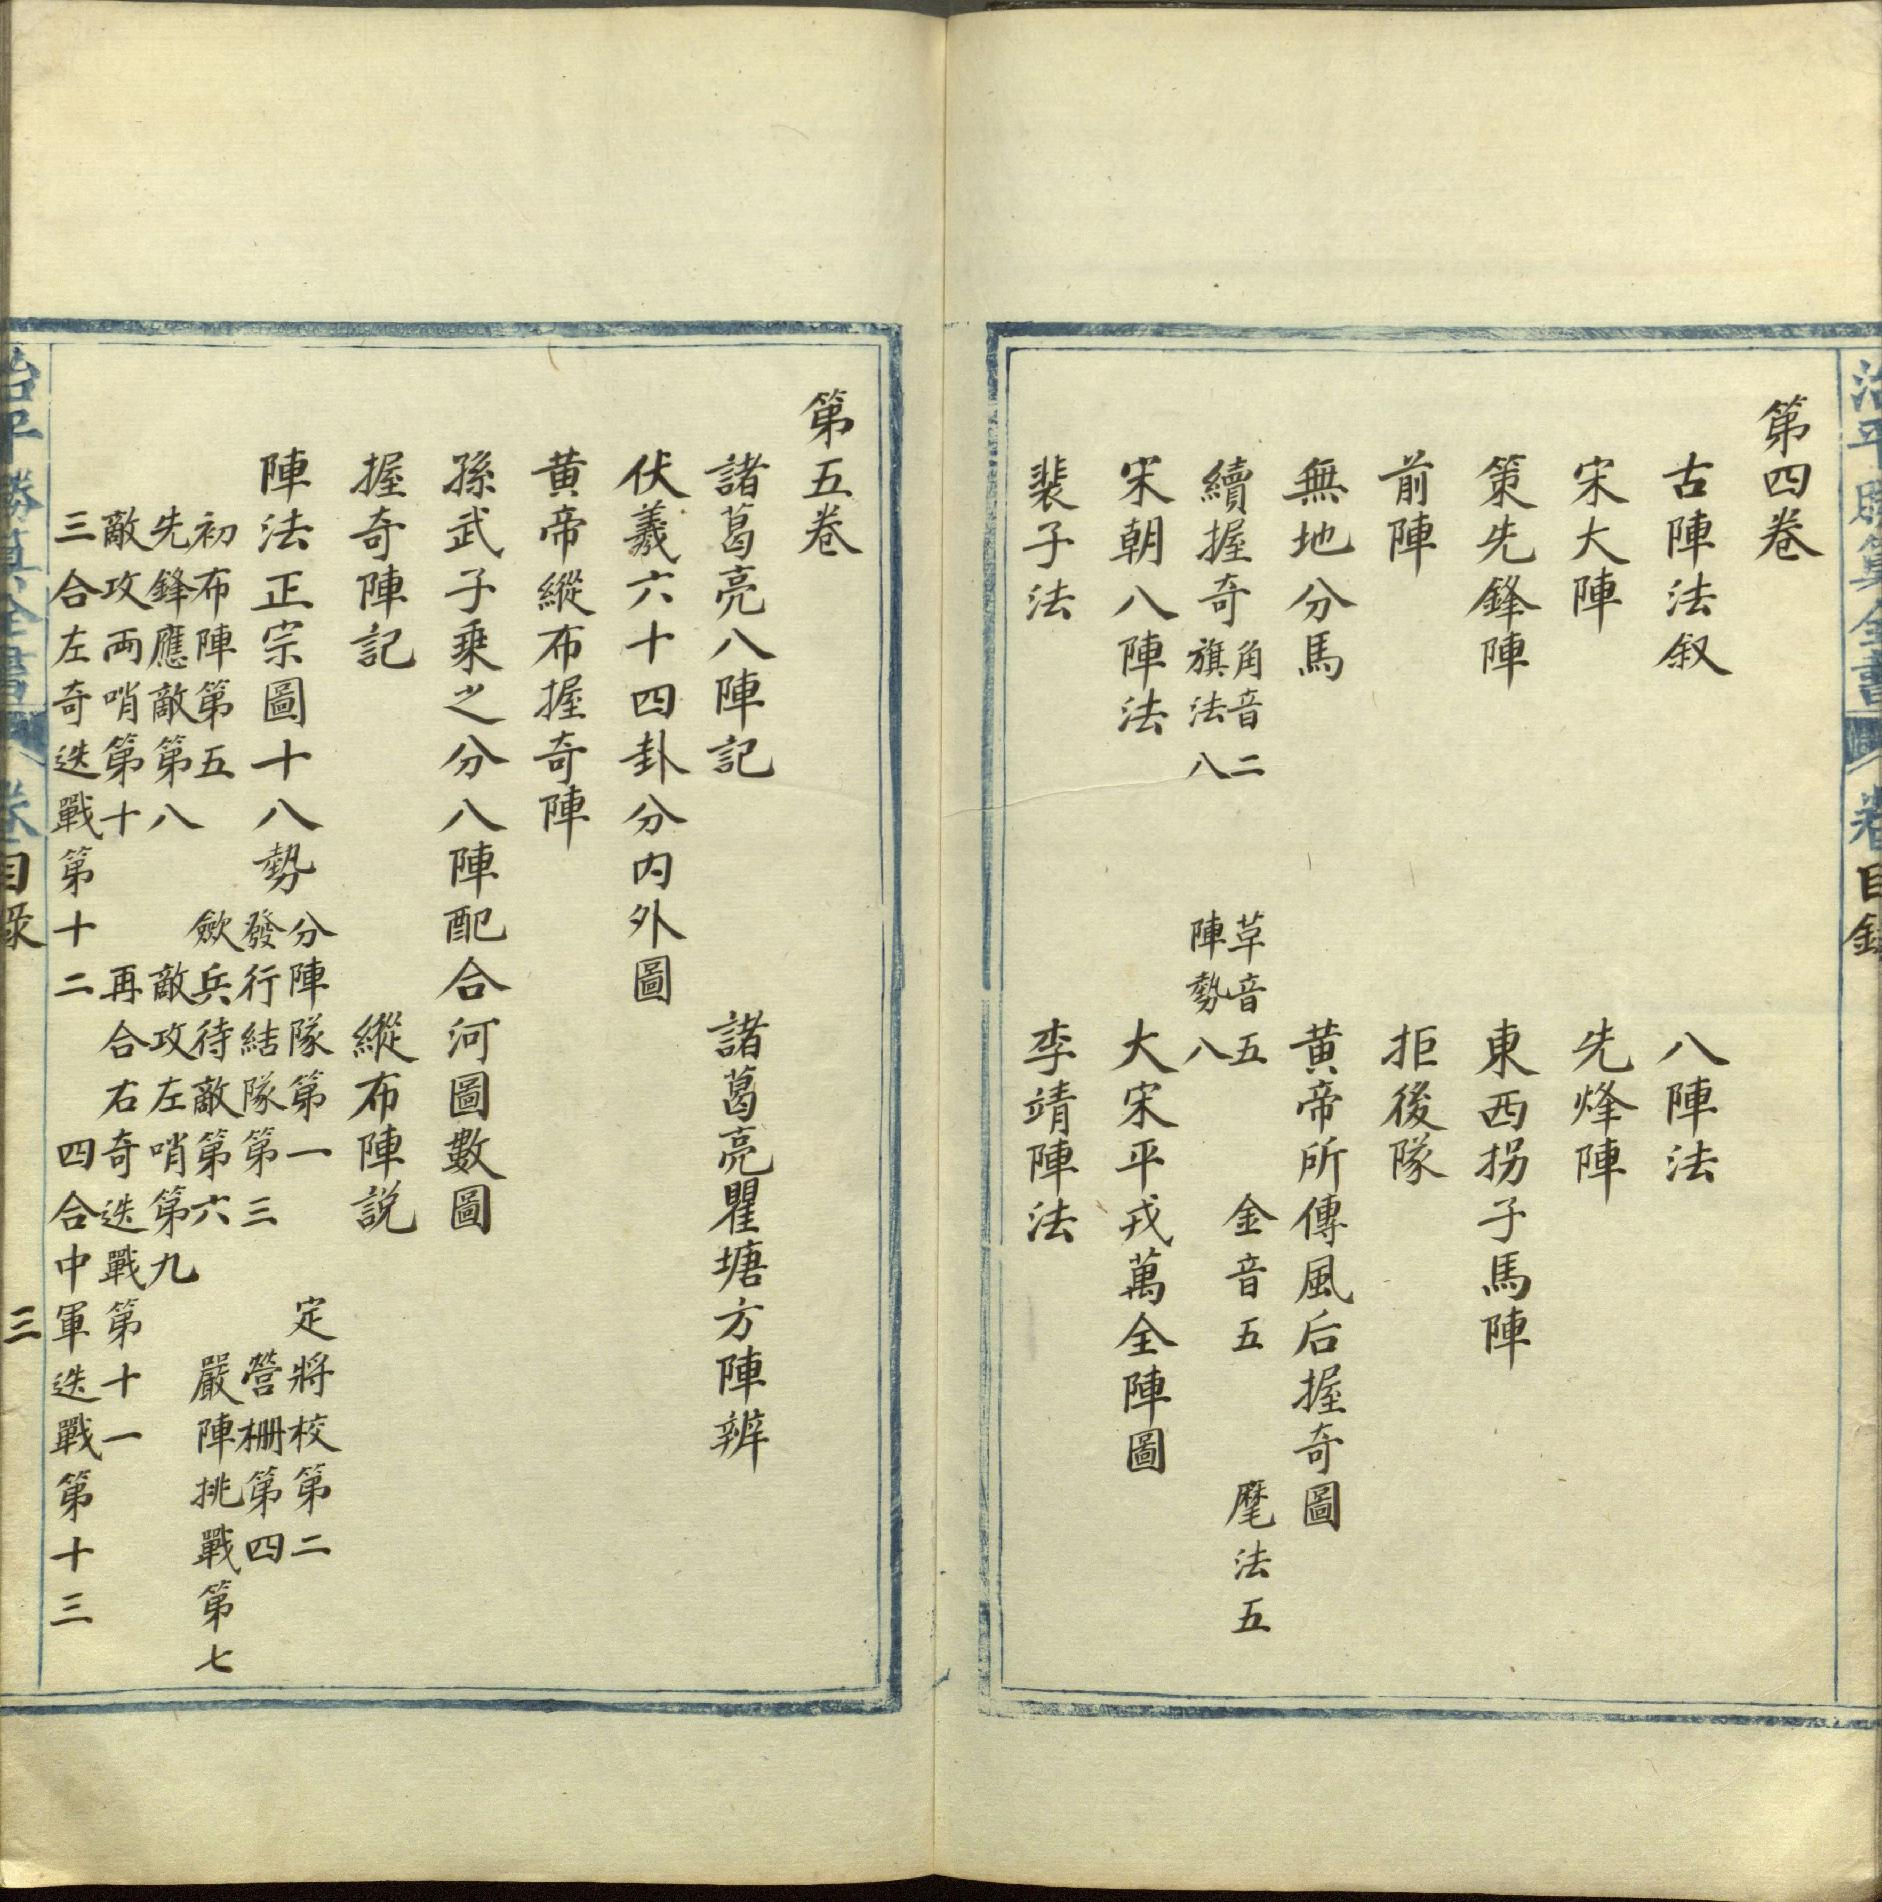 治平勝算全書 卷 目錄
第四卷
古陣法叙 八陣法
宋大陣 先烽陣
策先鋒陣 東西拐子馬陣
前陣 拒後隊
無地分馬 黃帝所傳風后握奇圖
續握奇 角音二 草音五 金音五 麾法五
旗法八 陣勢八
宋朝八陣法 大宋平戎萬全陣圖
裴子法 李靖陣法
第五卷
諸葛亮八陣記 諸葛亮瞿塘方陣辨
伏羲六十四卦分内外圖
黃帝縱布握奇陣
孫武子乘之分八陣配合河圖數圖
握奇陣記 縱布陣説
陣法正宗圖十八勢 分陣隊第一 定將校第二
發行結隊第三 營柵第四
初布陣第五 歛兵待敵第六 嚴陣挑戰第七
先鋒應敵第八 敵攻左哨第九
敵攻両哨第十 再合右奇迭戰第十一
三合左奇迭戰第十二 四合中軍迭戰第十三
治平勝算全書 卷 目錄 三